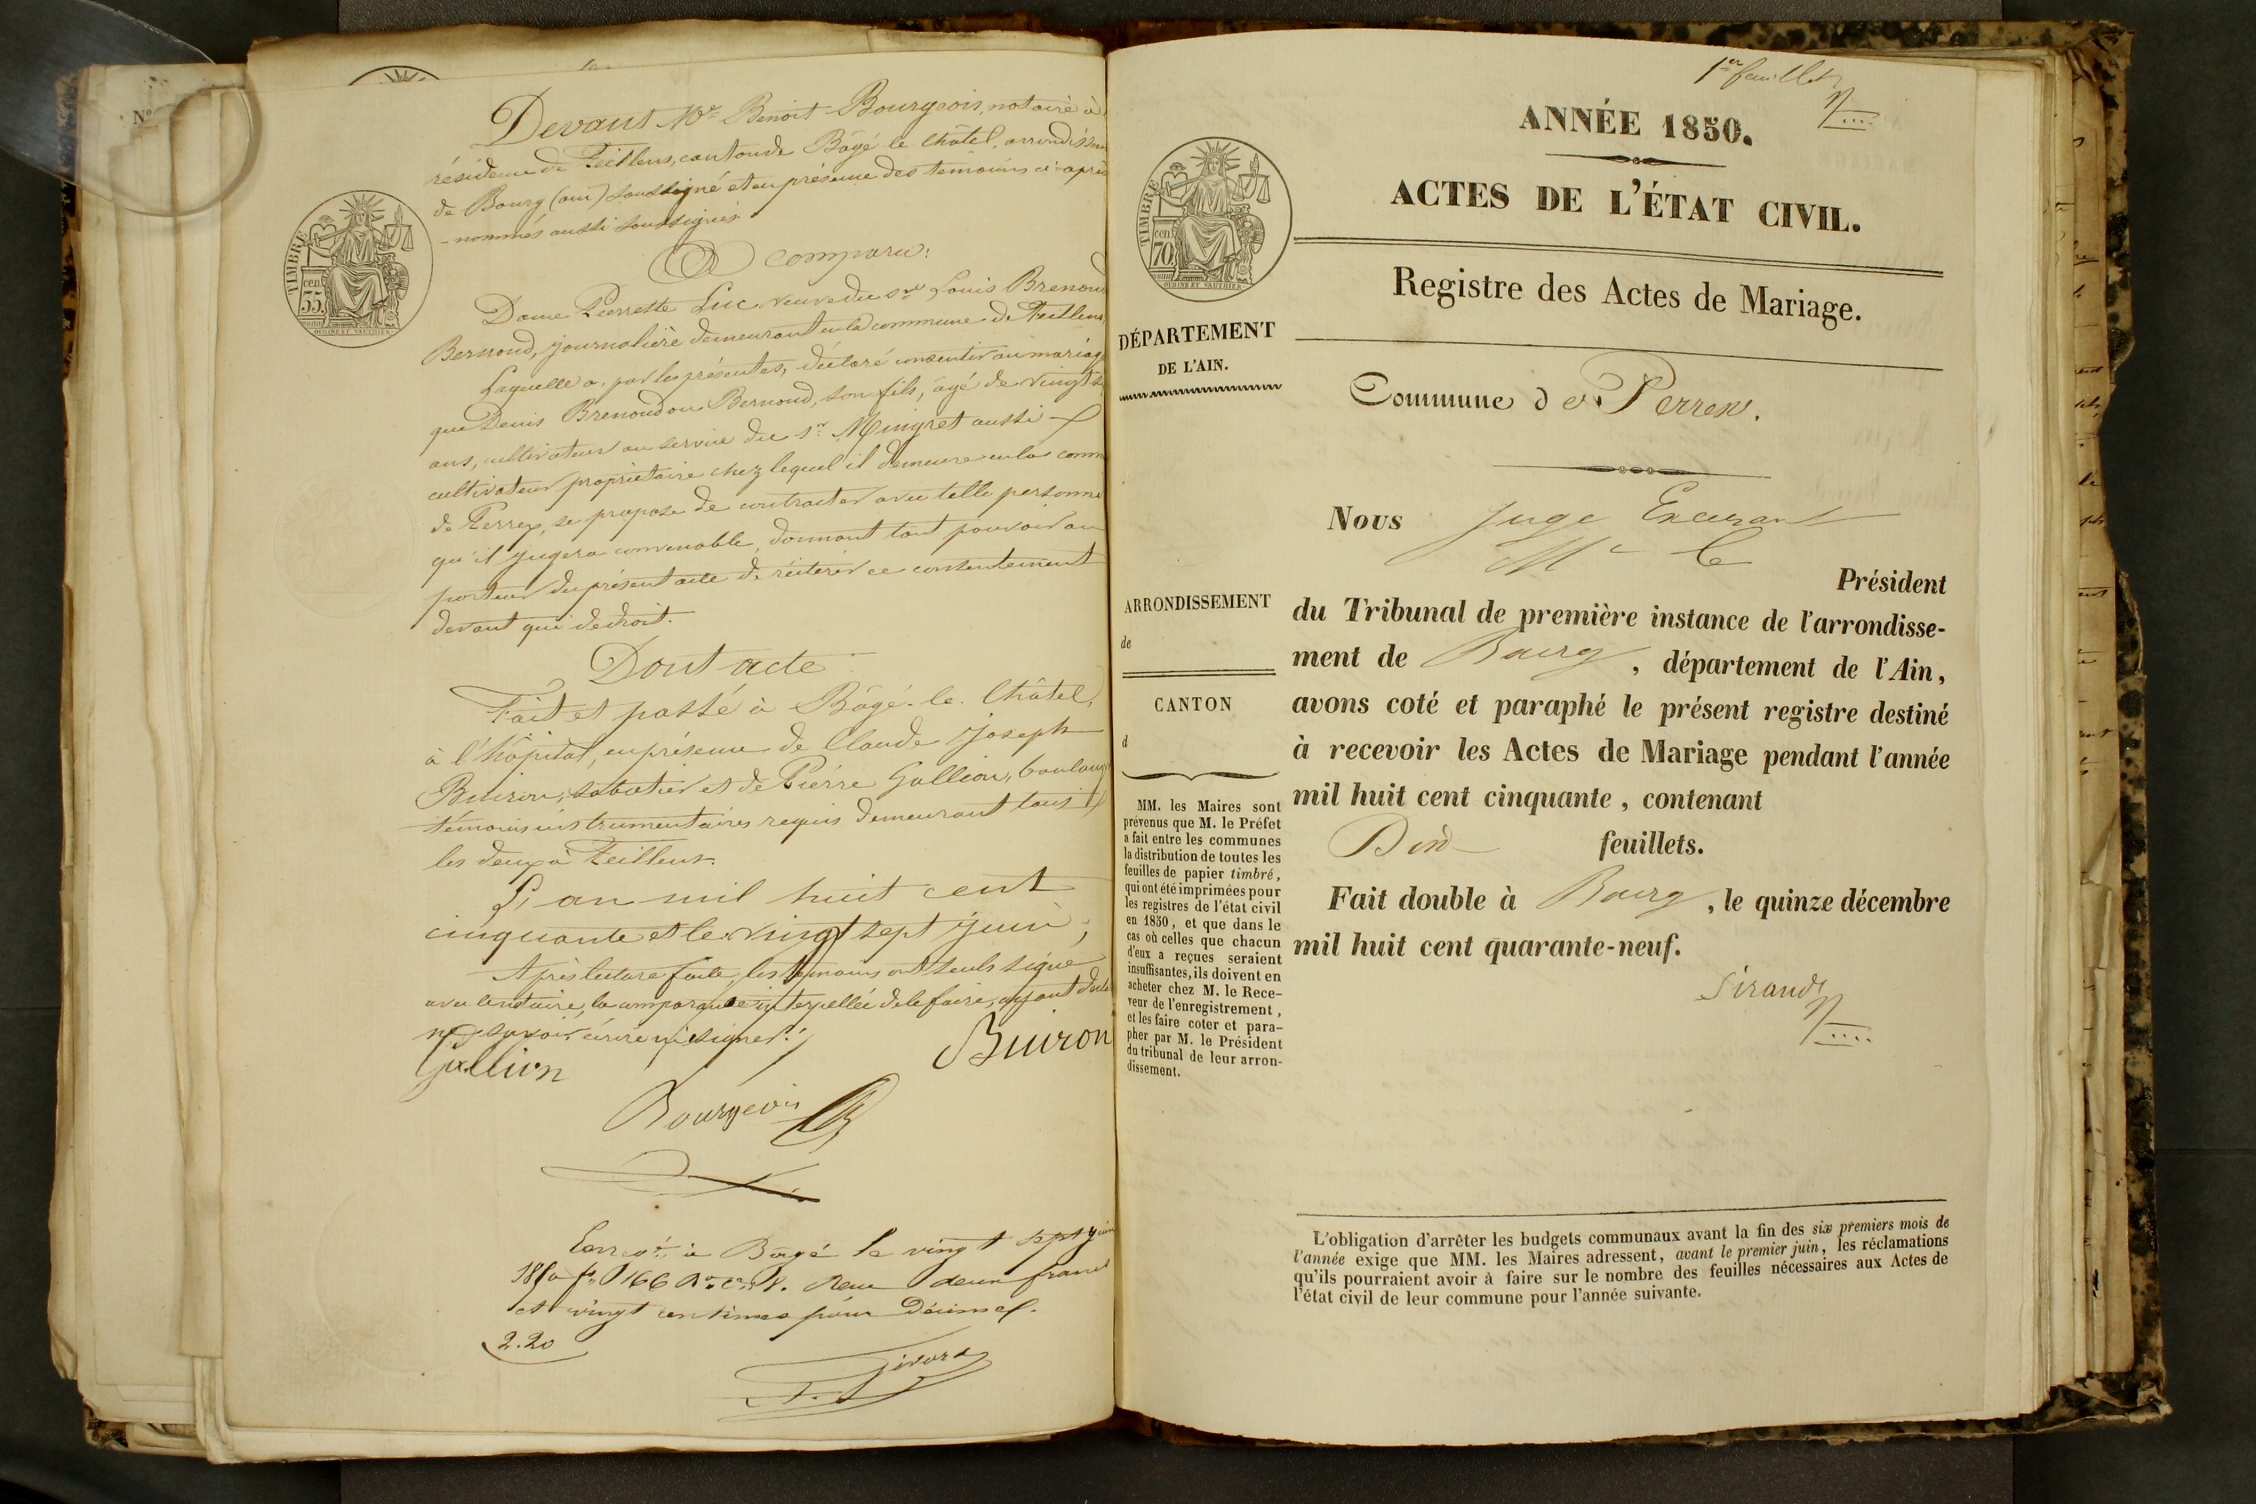 Devant Me Benoit Bourgeois, notaire à
résidence de Feillens, canton de Bâgé le Châtel, arrondissem
de Bourg (ain) soussigné et en présence des témoins ci-après
-nommés aussi soussignés
A comparu:
Dame Pierrette Luc veuve du sr Louis Brenoud
Bernoud, journalière demeurant en la commune de Feillens,
Laquelle a, par les présentes, déclaré consentir au mariage
que Denis Brenoud ou Bernoud, son fils, âgé de vingt
ans, cultivateur au service du sr Mingret aussi
cultivateur propriétaire chez lequel il demeure en la comm
de Perrex, se propose de contracter avec telle personne
qu'il jugera convenable, donnant tout pouvoir au
porteur du présent acte de réitérer ce consentement
devant qui de droit.
Dont acte
Fait et passé à Bâgé-le-Châtel,
à l'hôpital, en présence de Claude Joseph
Buiron, sabotier et de Pierre Gallion, boulang
témoins instrumentaires requis demeurant tous
les deux à Feillens.
L'an mil huit cent
cinquante et le vingt sept juin,
Après lecture faite, les témoins ont seuls signé
avec le notaire, la comparante interpellée de le faire, ayant déclaré
ne savoir écrire ni signer.
Gallion
Buiron
Bourgeois
Enreg.é à Bâgé le vingt sept juin
1850 fo 166 Ro c. Reçu deux francs
et vingt centimes pour décimes.
2.20
TIMBRE
cen
35
OUDINE ET VAUTHIER
No
1er feuillet
ANNÉE 1850.
ACTES DE L'ÉTAT CIVIL.
Registre des Actes de Mariage.
TIMBRE
cen
70
OUDINE ET VAUTHIER
DÉPARTEMENT
DE L'AIN.
Commune de Perrex.
Nous Juge
Président
du Tribunal de première instance de l'arrondisse-
ment de Bourg, département de l'Ain,
avons coté et paraphé le présent registre destiné
à recevoir les Actes de Mariage pendant l'année
mil huit cent cinquante, contenant
feuillets.
Fait double à Bourg, le quinze décembre
mil huit cent quarante-neuf.
Sirand
ARRONDISSEMENT
de
CANTON
d
MM. les Maires sont
prévenus que M. le Préfet
a fait entre les communes
la distribution de toutes les
feuilles de papier timbré,
qui ont été imprimées pour
les registres de l'état civil
en 1850, et que dans le
cas où celles que chacun
d'eux a reçues seraient
insuffisantes, ils doivent en
acheter chez M. le Rece-
veur de l'enregistrement,
et les faire coter et para-
pher par M. le Président
du tribunal de leur arron-
dissement.
L'obligation d'arrêter les budgets communaux avant la fin des six premiers mois de
l'année exige que MM. les Maires adressent, avant le premier juin, les réclamations
qu'ils pourraient avoir à faire sur le nombre des feuilles nécessaires aux Actes de
l'état civil de leur commune pour l'année suivante.